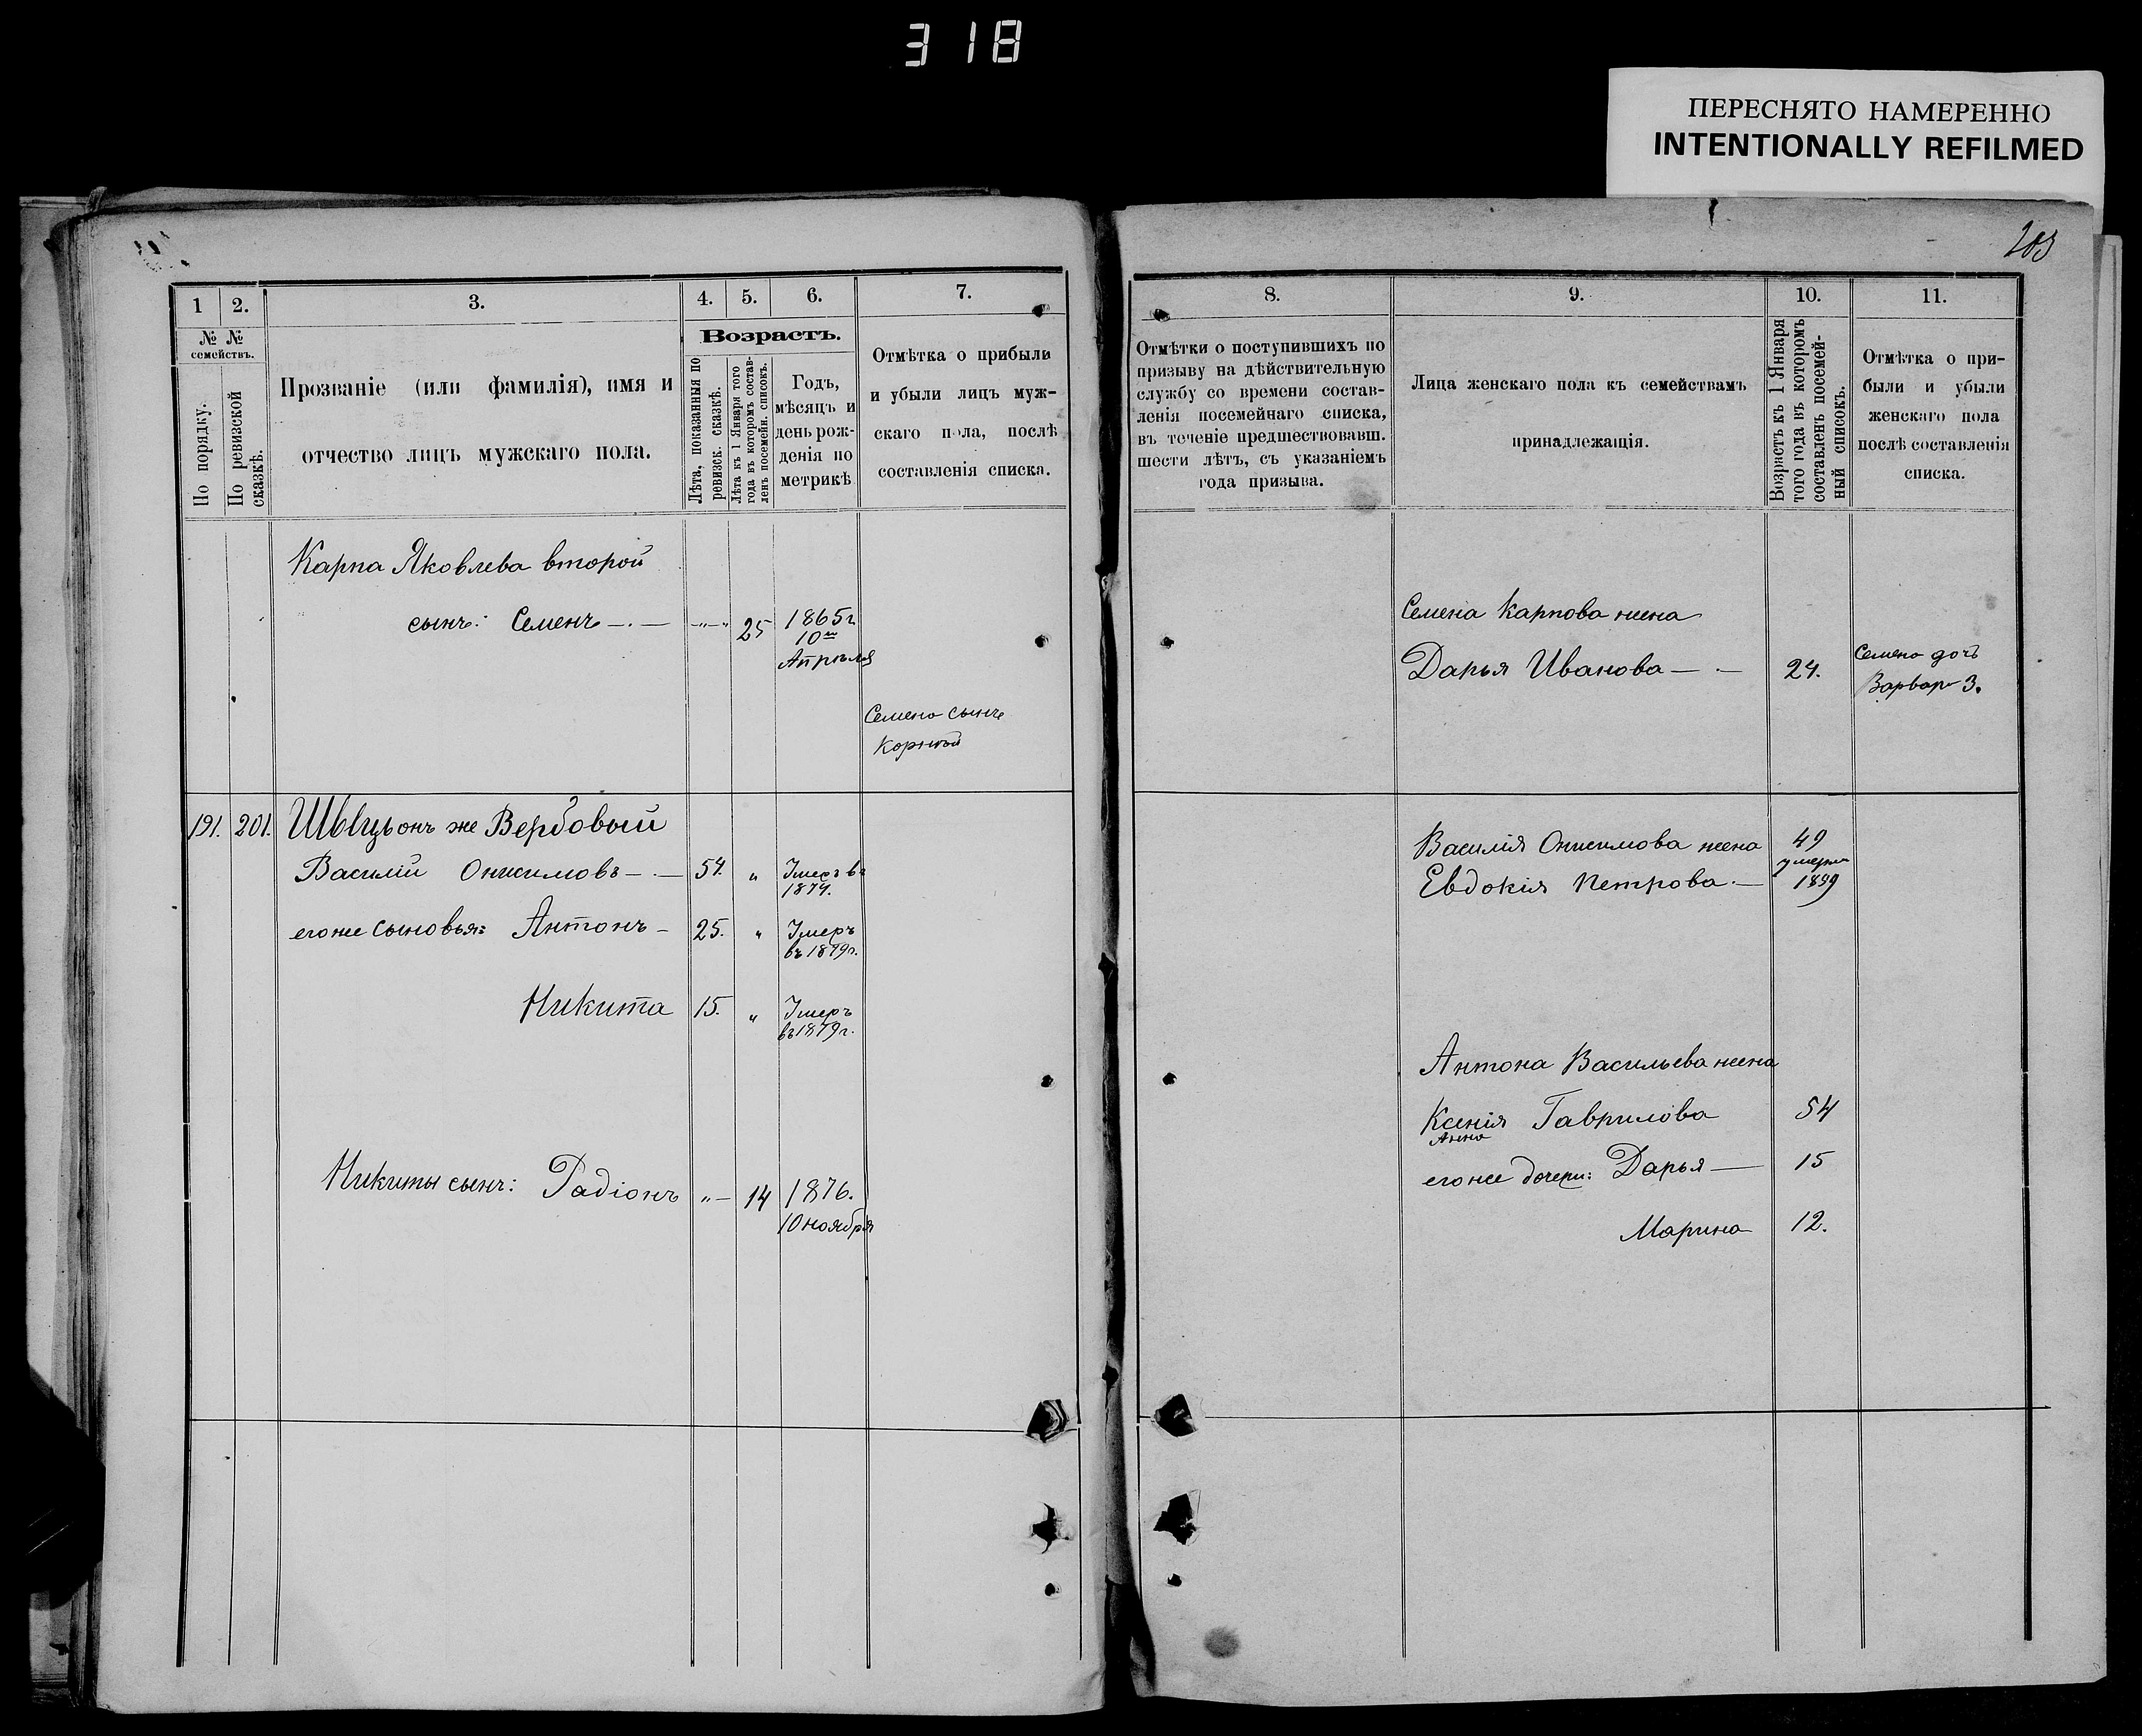 318
ПЕРЕСНЯТО НАМЕРЕННО
INTENTIONALLY REFILMED
203
1
2.
3.
4.
5.
6.
7.
№ №
семействъ.
По порядку.
По ревизской
сказкѣ.
Прозваніе (или фамилія), имя и
отчество лицъ мужскаго пола.
Возрастъ.
Лѣта, показанныя по
ревизск. сказкѣ.
Лѣта къ 1 Января того
года въ которомъ состав-
ленъ посемейн. списокъ.
Годъ,
мѣсяцъ и
день рож-
денія по
метрикѣ
Отмѣтка о прибыли
и убыли лицъ муж-
скаго пола, послѣ
составленія списка.
Карпа Яковлева второй
сынъ: Семенъ —.— „—„ 25 1865г
10го
Апрѣля
Семена сынъ
Корнѣй
191. 201. Швецъ онъ же Вербовый
Василій Онисимовъ —.— 54. „ Умеръ въ
1874.
его же сыновья: Антонъ — 25. „ Умеръ
въ 1879г.
Никита 15. „ Умеръ
въ 1879г.
Никиты сынъ: Радіонъ „— 14 1876.
10 ноября
8.
9.
10.
11.
Отмѣтки о поступившихъ по
призыву на дѣйствительную
службу со времени состав-
ленія посемейнаго списка,
въ теченіе предшествовавш.
шести лѣтъ, съ указаніемъ
года призыва.
Лица женскаго пола къ семействамъ
принадлежащія.
Возрастъ къ 1 Января
того года въ которомъ
составленъ посемей-
ный списокъ.
Отмѣтка о при-
были и убыли
женскаго пола
послѣ составленія
списка.
Семена Карпова жена
Дарья Иванова — - — 24. Семена дочь
Варвар 3.
Василія Онисимова жена 49
Евдокія Петрова.— умерла
1889
Антона Васильева жена
Ксенія Гаврилова 54
Анна
его же дочери: Дарья — 15
Марина 12.